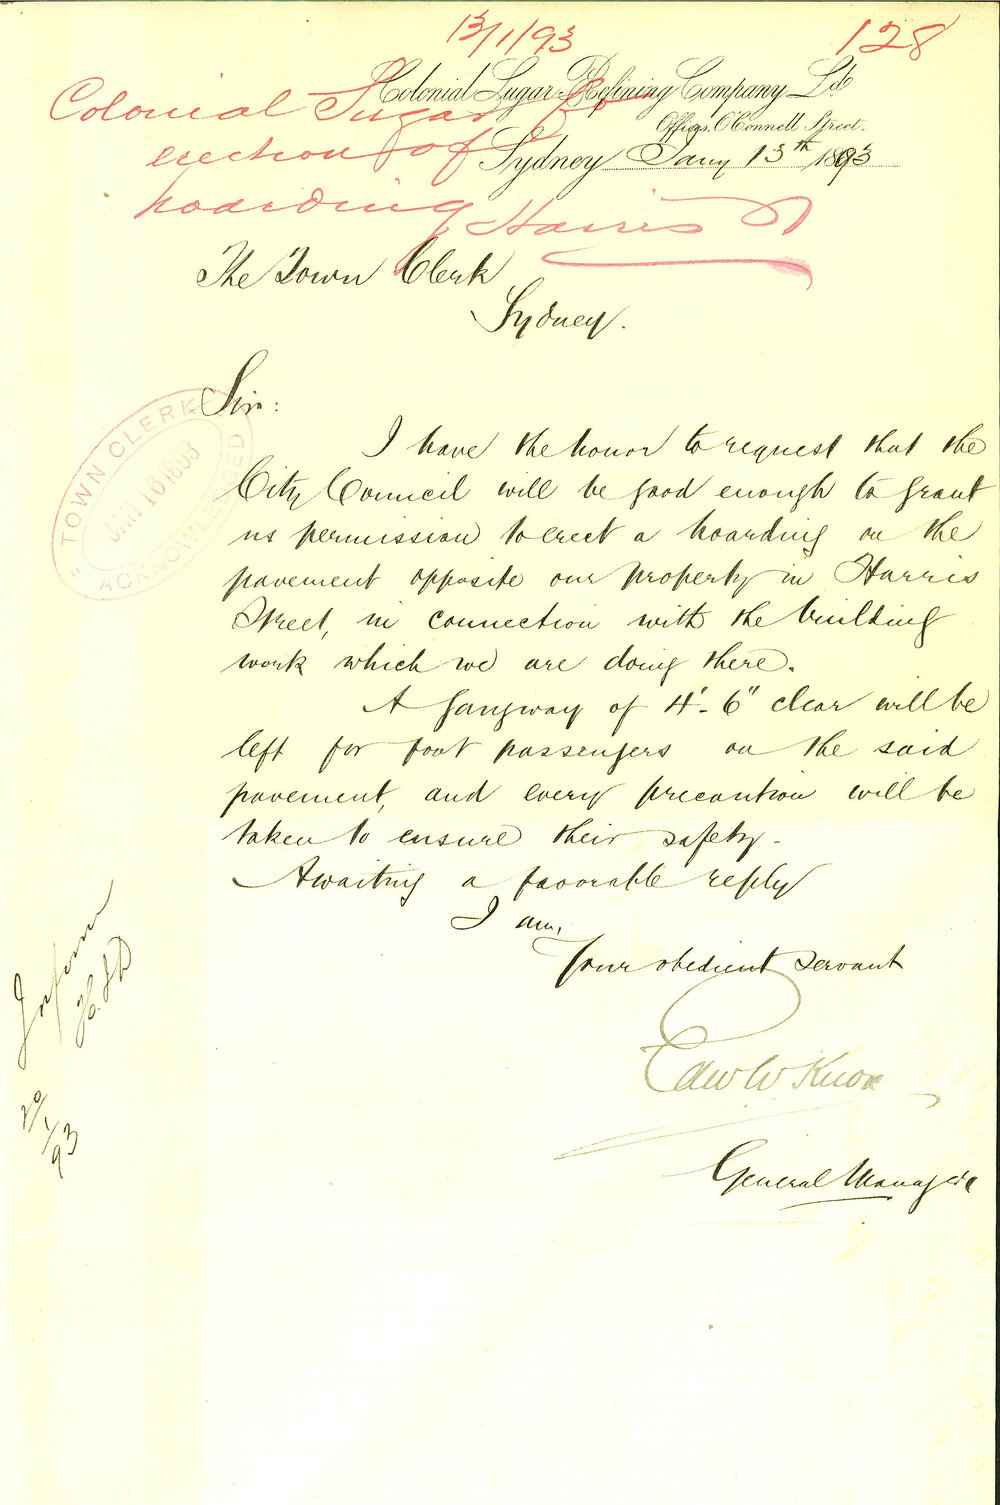 13/1/93
128
Colonial Sugar Refining Company Ltd
Offices, O'Connell Street.
Colonial Sugar
erection of
hoarding Harris St
Sydney Jany 13th 1893
The Town Clerk
Sydney.
TOWN CLERK
JAN 16 1893
ACKNOWLEDGED
Sir:
I have the honor to request that the
City Council will be good enough to grant
us permission to erect a hoarding on the
pavement opposite our property in Harris
Street, in connection with the building
work which we are doing there.
A gangway of 4'-6" clear will be
left for foot passengers on the said
pavement, and every precaution will be
taken to ensure their safety.
Awaiting a favorable reply
I am,
Your obedient servant
Edw W Knox
General Manager
Inform
20/1/93